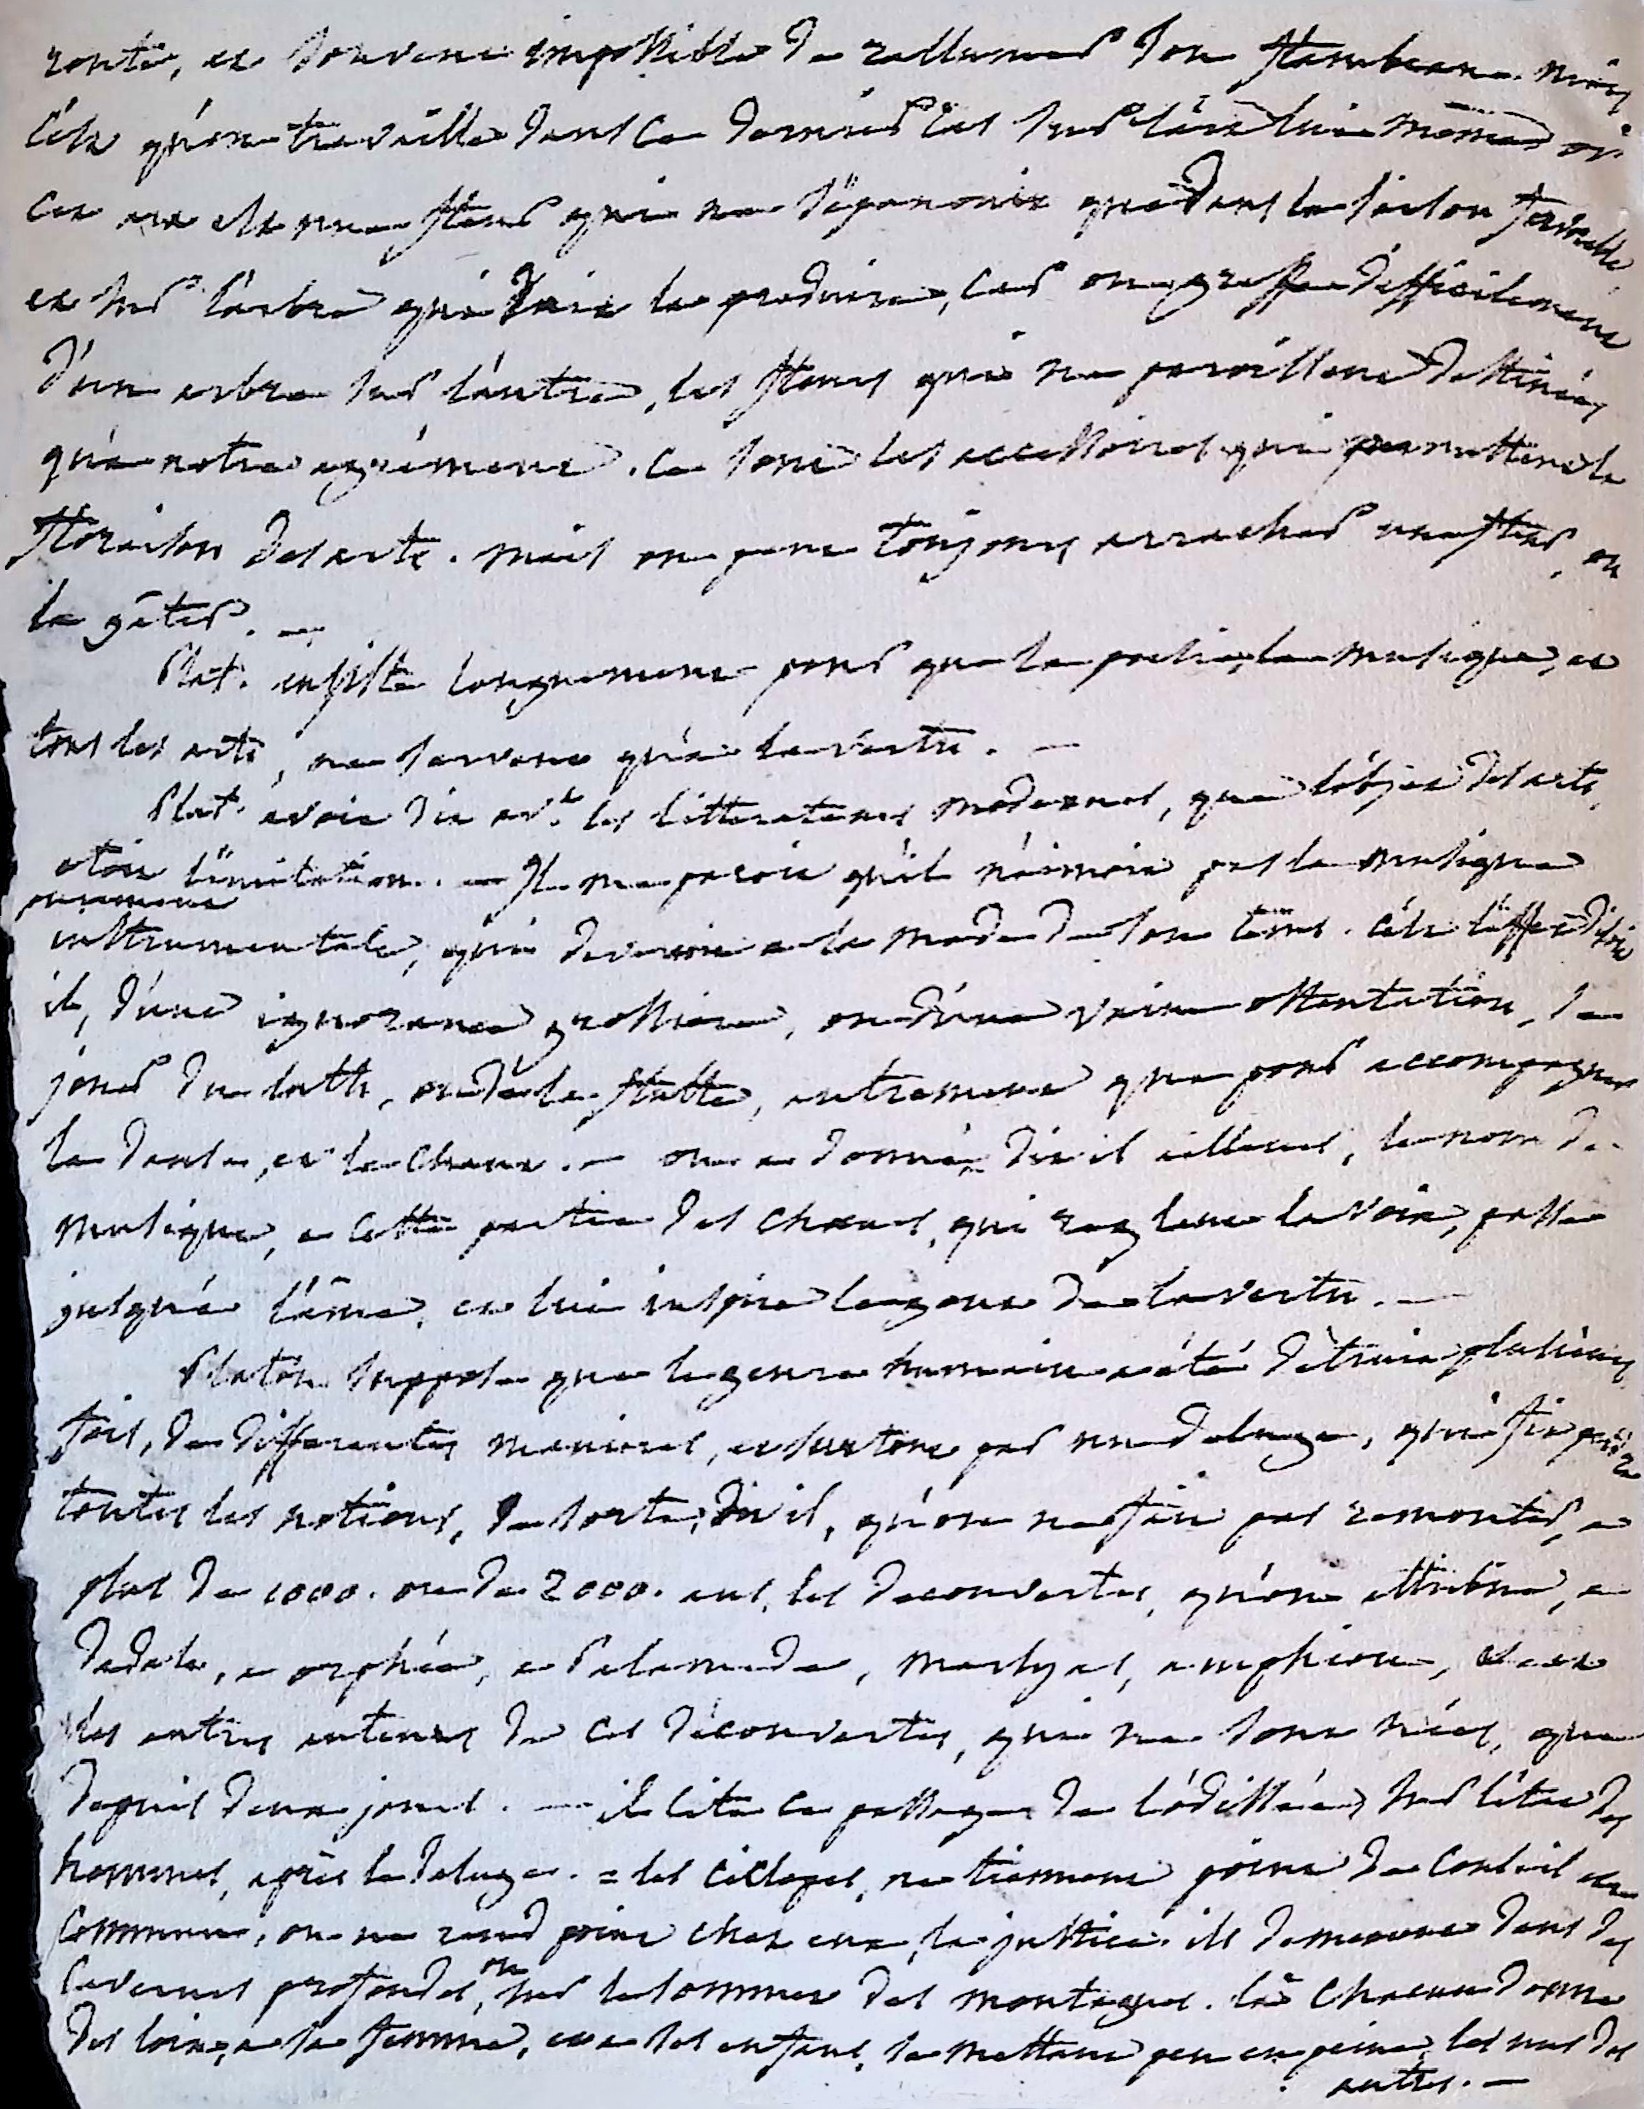 route, et souvent impossible de rallumer son flambeau. mais
c'est qu'on travaille dans ce dernier cas sur l'air lui même, or
cet art est une fleur qui ne s'épanouit que dans la saison favorable
et sur l'arbre qui doit la produire, car on greffe difficilement
d'un arbre sur l'autre, les fleurs qui ne paroissent destinées
qu'a notre agrément. ce sont les accessoires qui permettent la
floraison des arts. mais on peut toujours arracher une fleur, ou
la gâter. —
Plat. insiste longuement pour que la poesie, la musique, et
tous les arts, ne servent qu'a la vertu. —
Plat. avoit dit av.t les litterateurs modernes, que l'objet des arts,
etoit l'imitation. — Il me paroit qu'il n'aimoit pas la musique
purement
instrumentale, qui devenoit a la mode de son tems. c'est l'effet disoit
il, d'une ignorance grossiere, ou d'une vaine ostentation, de
jouer du luth, ou de la flutte, autrement que pour accompagner
la danse, et le chant. — on a donné, dit il ailleurs, le nom de
musique, a cette partie des chœurs, qui reglant la voix, passe
jusqu'a l'âme, et lui inspire le gout de la vertu. —
Platon suppose que le genre humain a été détruit plusieurs
fois, de differentes manieres, et surtout par un deluge, qui fit perdre
toutes les notions, de sorte, dit il, qu'on ne fait pas remonter, a
plus de 1000. ou de 2000. ans, les decouvertes, qu'on attribue, a
dedale, a orphée, a Palamede, marsyas, amphion, et a
des autres auteurs de ces découvertes, qui ne sont nées, que
depuis deux jours. — il cite ce passage de l'odissée, sur l'état des
hommes, après le deluge. = les ciclopes, ne tiennent point de conseil en
commun, on ne rend point chez eux, la justice. ils demeurent dans des
cavernes profondes, ou sur le sommet des montagnes. là chacun donne
des loix, a sa femme, et a ses enfans, se mettant peu en peine, les uns des
autres. —